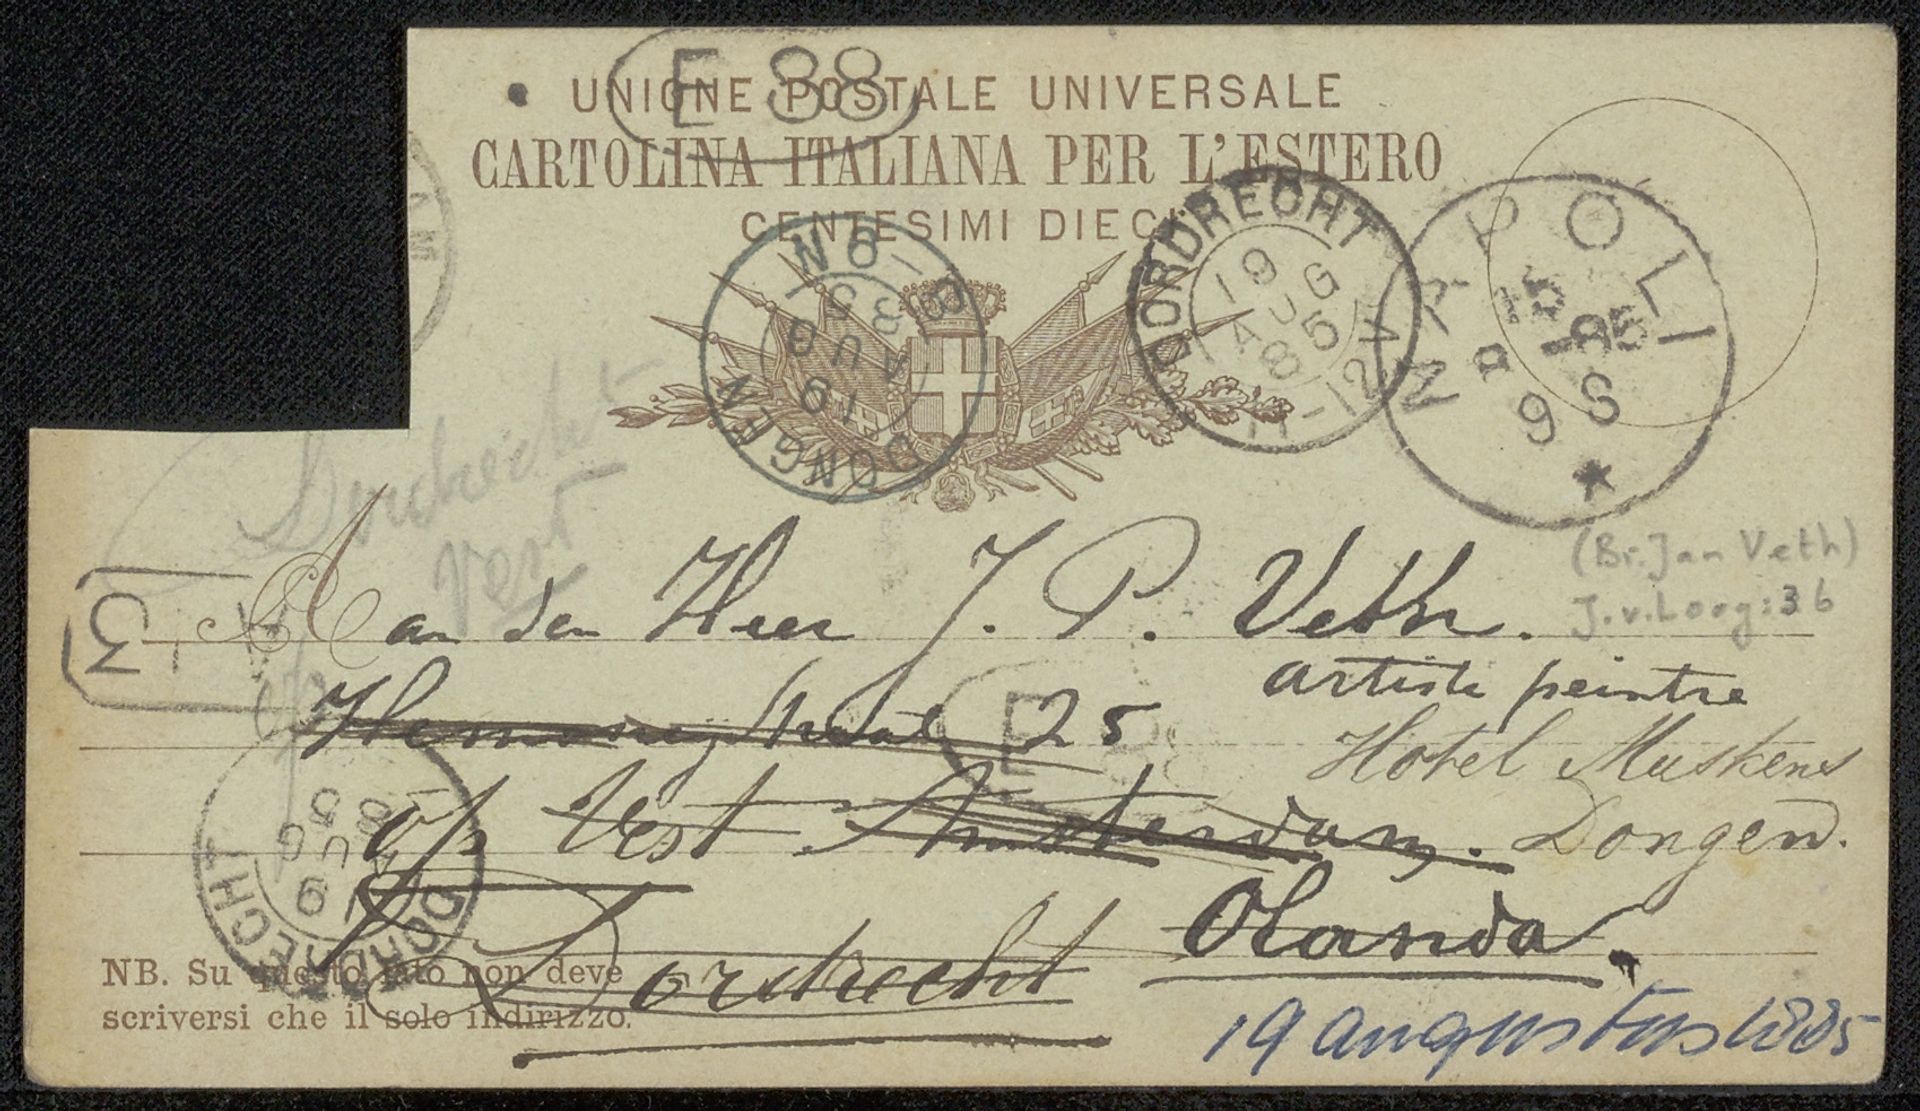 E 38
UNIONE POSTALE UNIVERSALE
CARTOLINA ITALIANA PER L'ESTERO
CENTESIMI DIECI
DORDRECHT
19 AUG 85
11-12V
NAPOLI
15 8-85
9 S
DONGEN
19 AUG 85
8-9N
Dordrecht
Vest
(Br. Jan Veth)
J.v.Looy: 36
Aan den Heer J. P. Veth.
artiste peintre
Hemonystraat 25
Hotel Muskens
op Vest Amsterdam. Dongen.
E
3
DORDRECHT
19 AUG 85
Dordrecht
Olanda.
NB. Su questo lato non deve
scriversi che il solo indirizzo.
19 augustus 1885